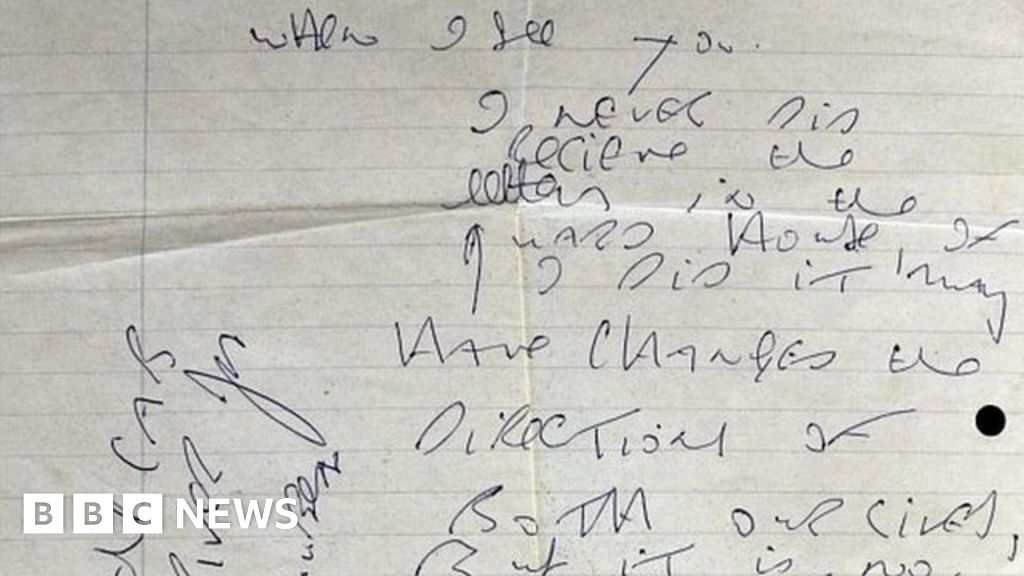 when I see you.
I never did
recieve the
letters in the
ward House, If
I did it may
Have Changed the
Direction of
Both our lives,
But it is no
CAR
BBC NEWS